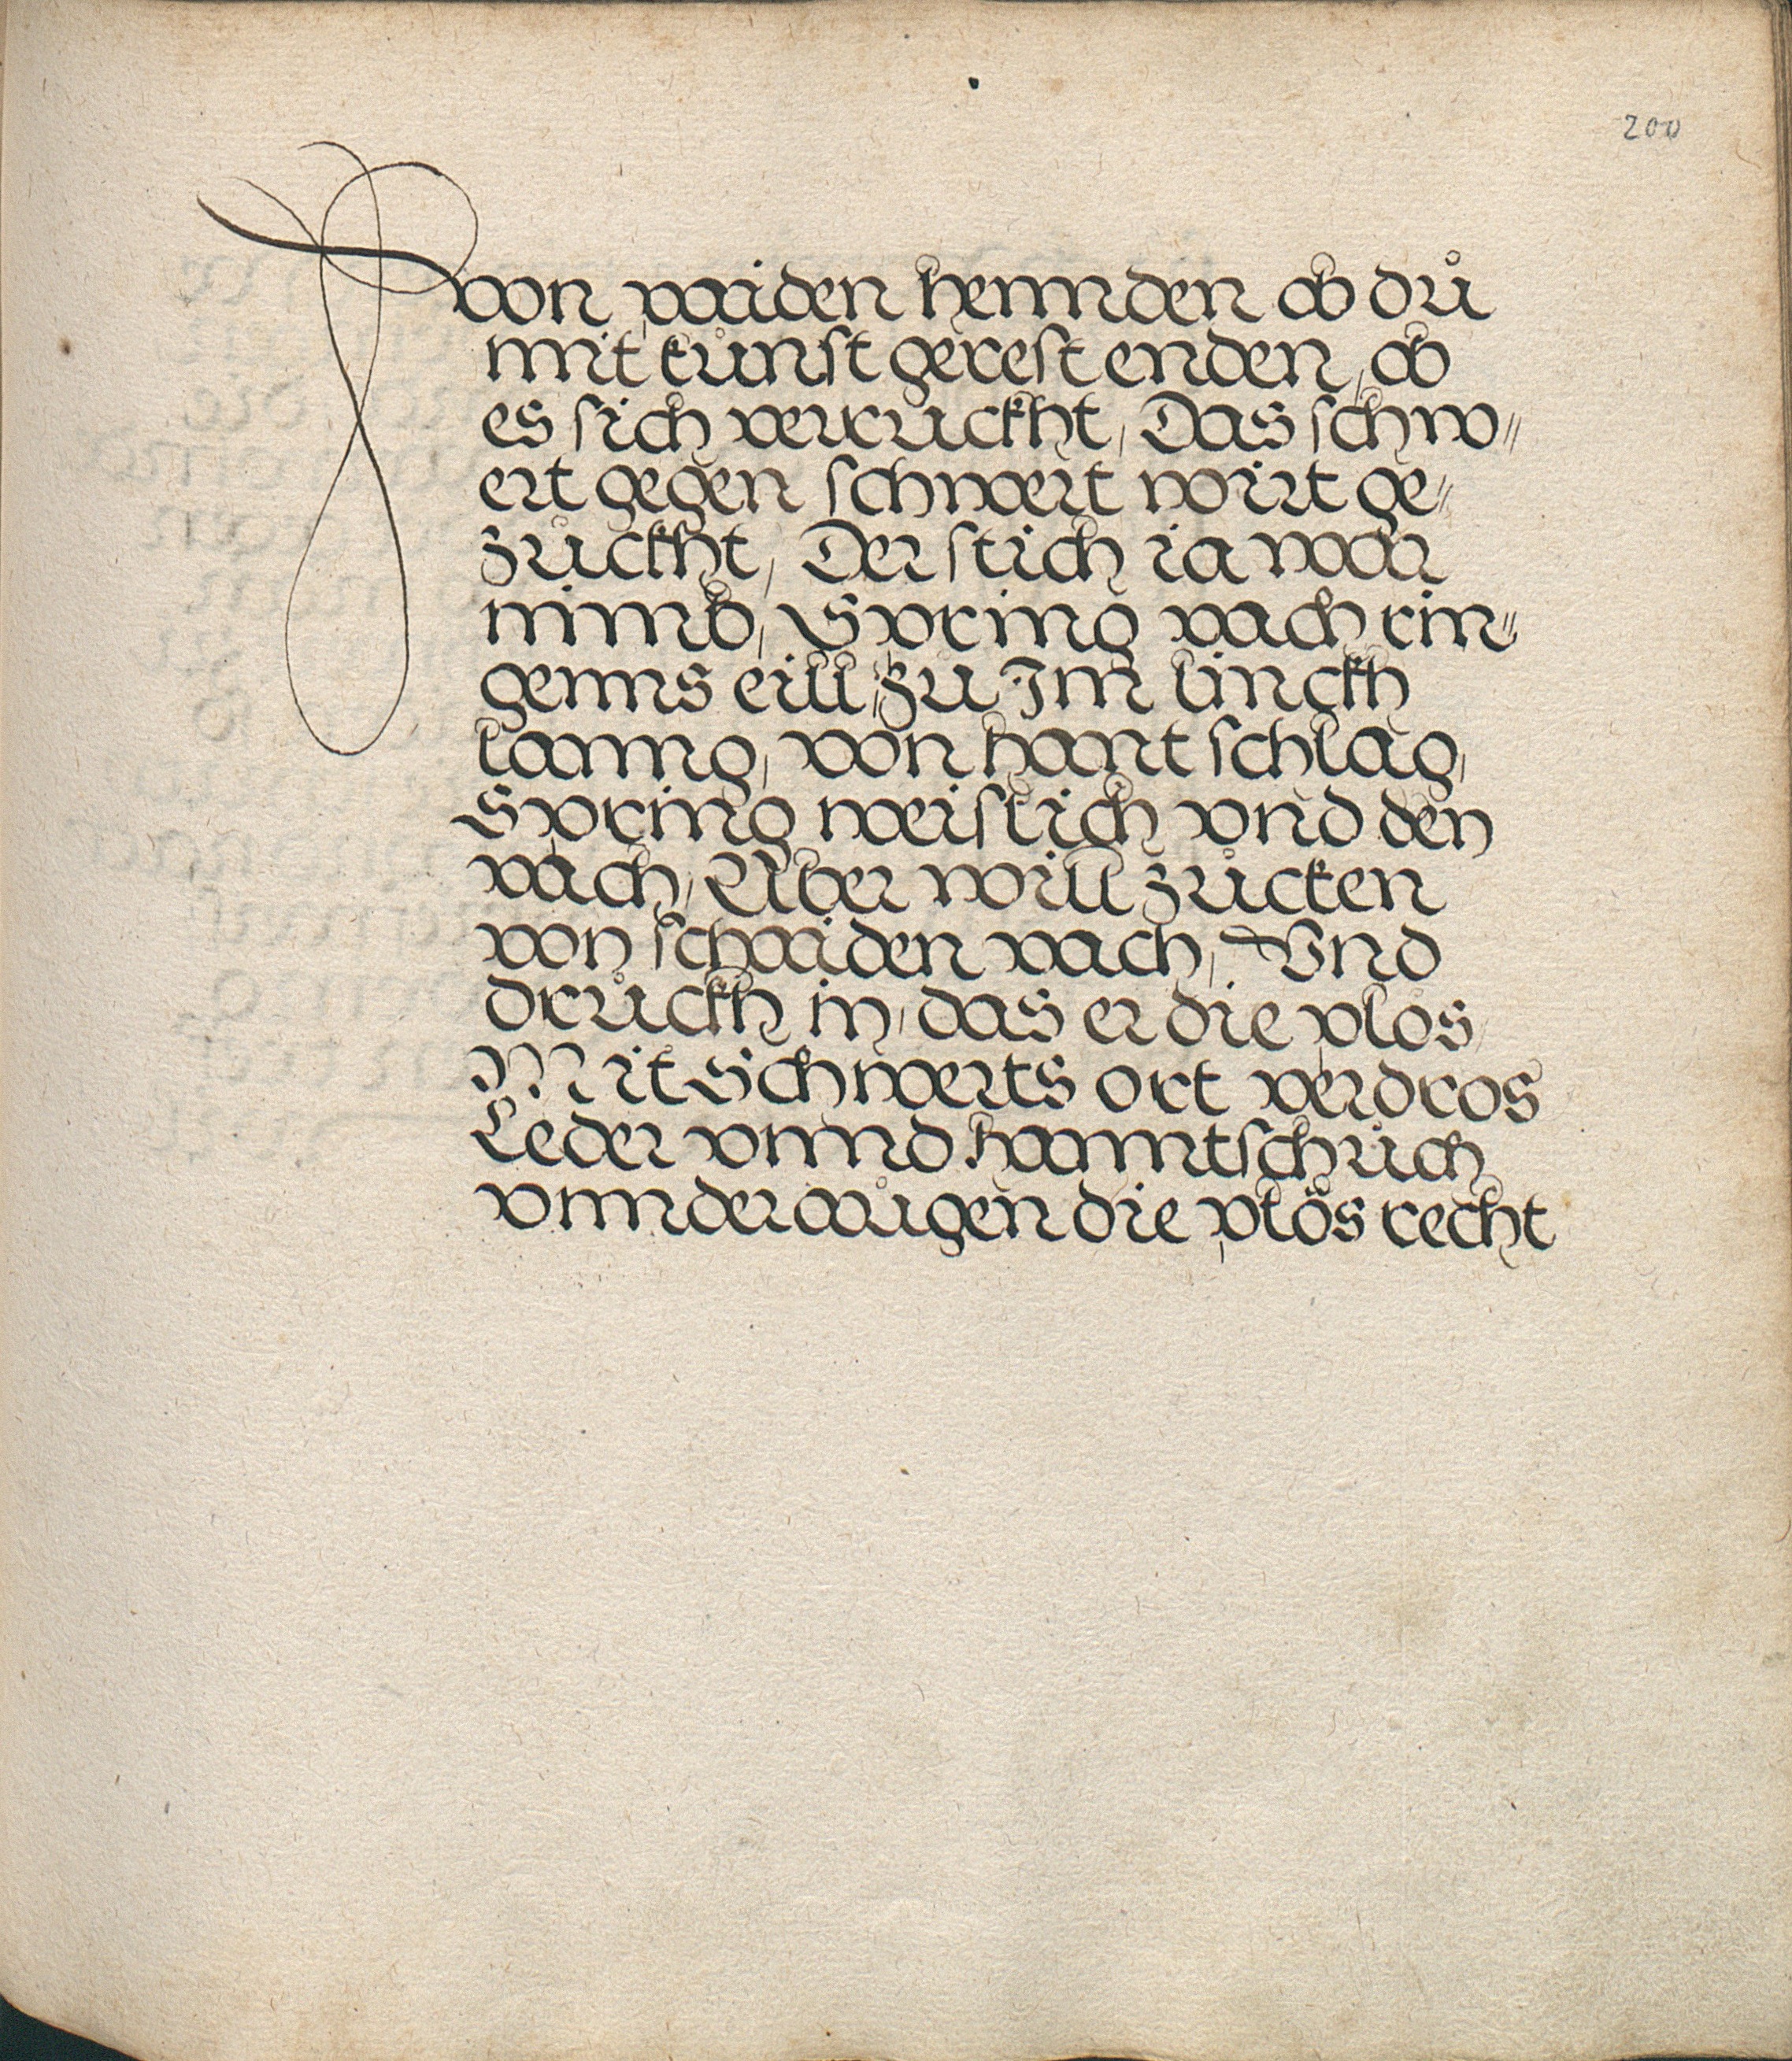 200
von paiden hennden ob dů
mit kůnst gerest enden, ob
es sich verruckht, Das schw⸗
ert gegen schwert wirt ge⸗
zůckht, Der stich ia war
nimb, Spring vach rin⸗
genns eill zu Im linckh
lanng, von hant schlag,
Spring weislich vnd den
vach, Aber will zůcken
von schaiden vach, Vnd
drůckh in, das er die plos
Mit Schwerts ort verdros
Leder vnnd hanntschuch
vnnder aůgen die plös recht